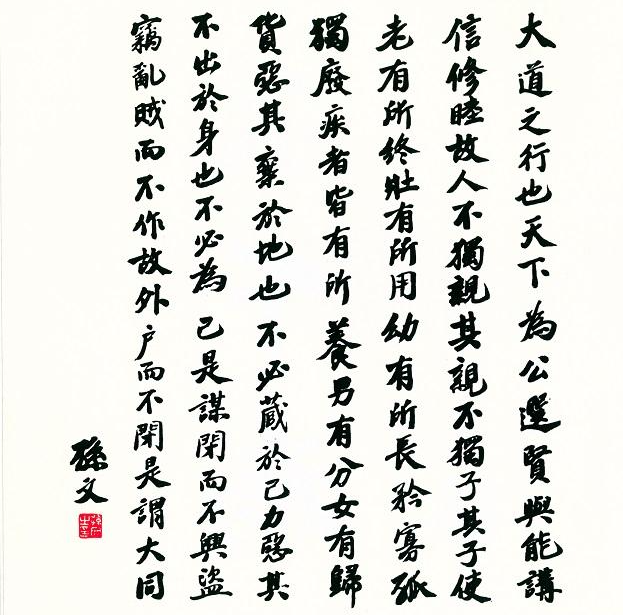 大道之行也天下為公選賢與能講
信修睦故人不獨親其親不獨子其子使
老有所終壯有所用幼有所長矜寡孤
獨廢疾者皆有所養男有分女有歸
貨惡其棄於地也不必藏於己力惡其
不出於身也不必為己是謀閉而不興盜
竊亂賊而不作故外戶而不閉是謂大同
孫文